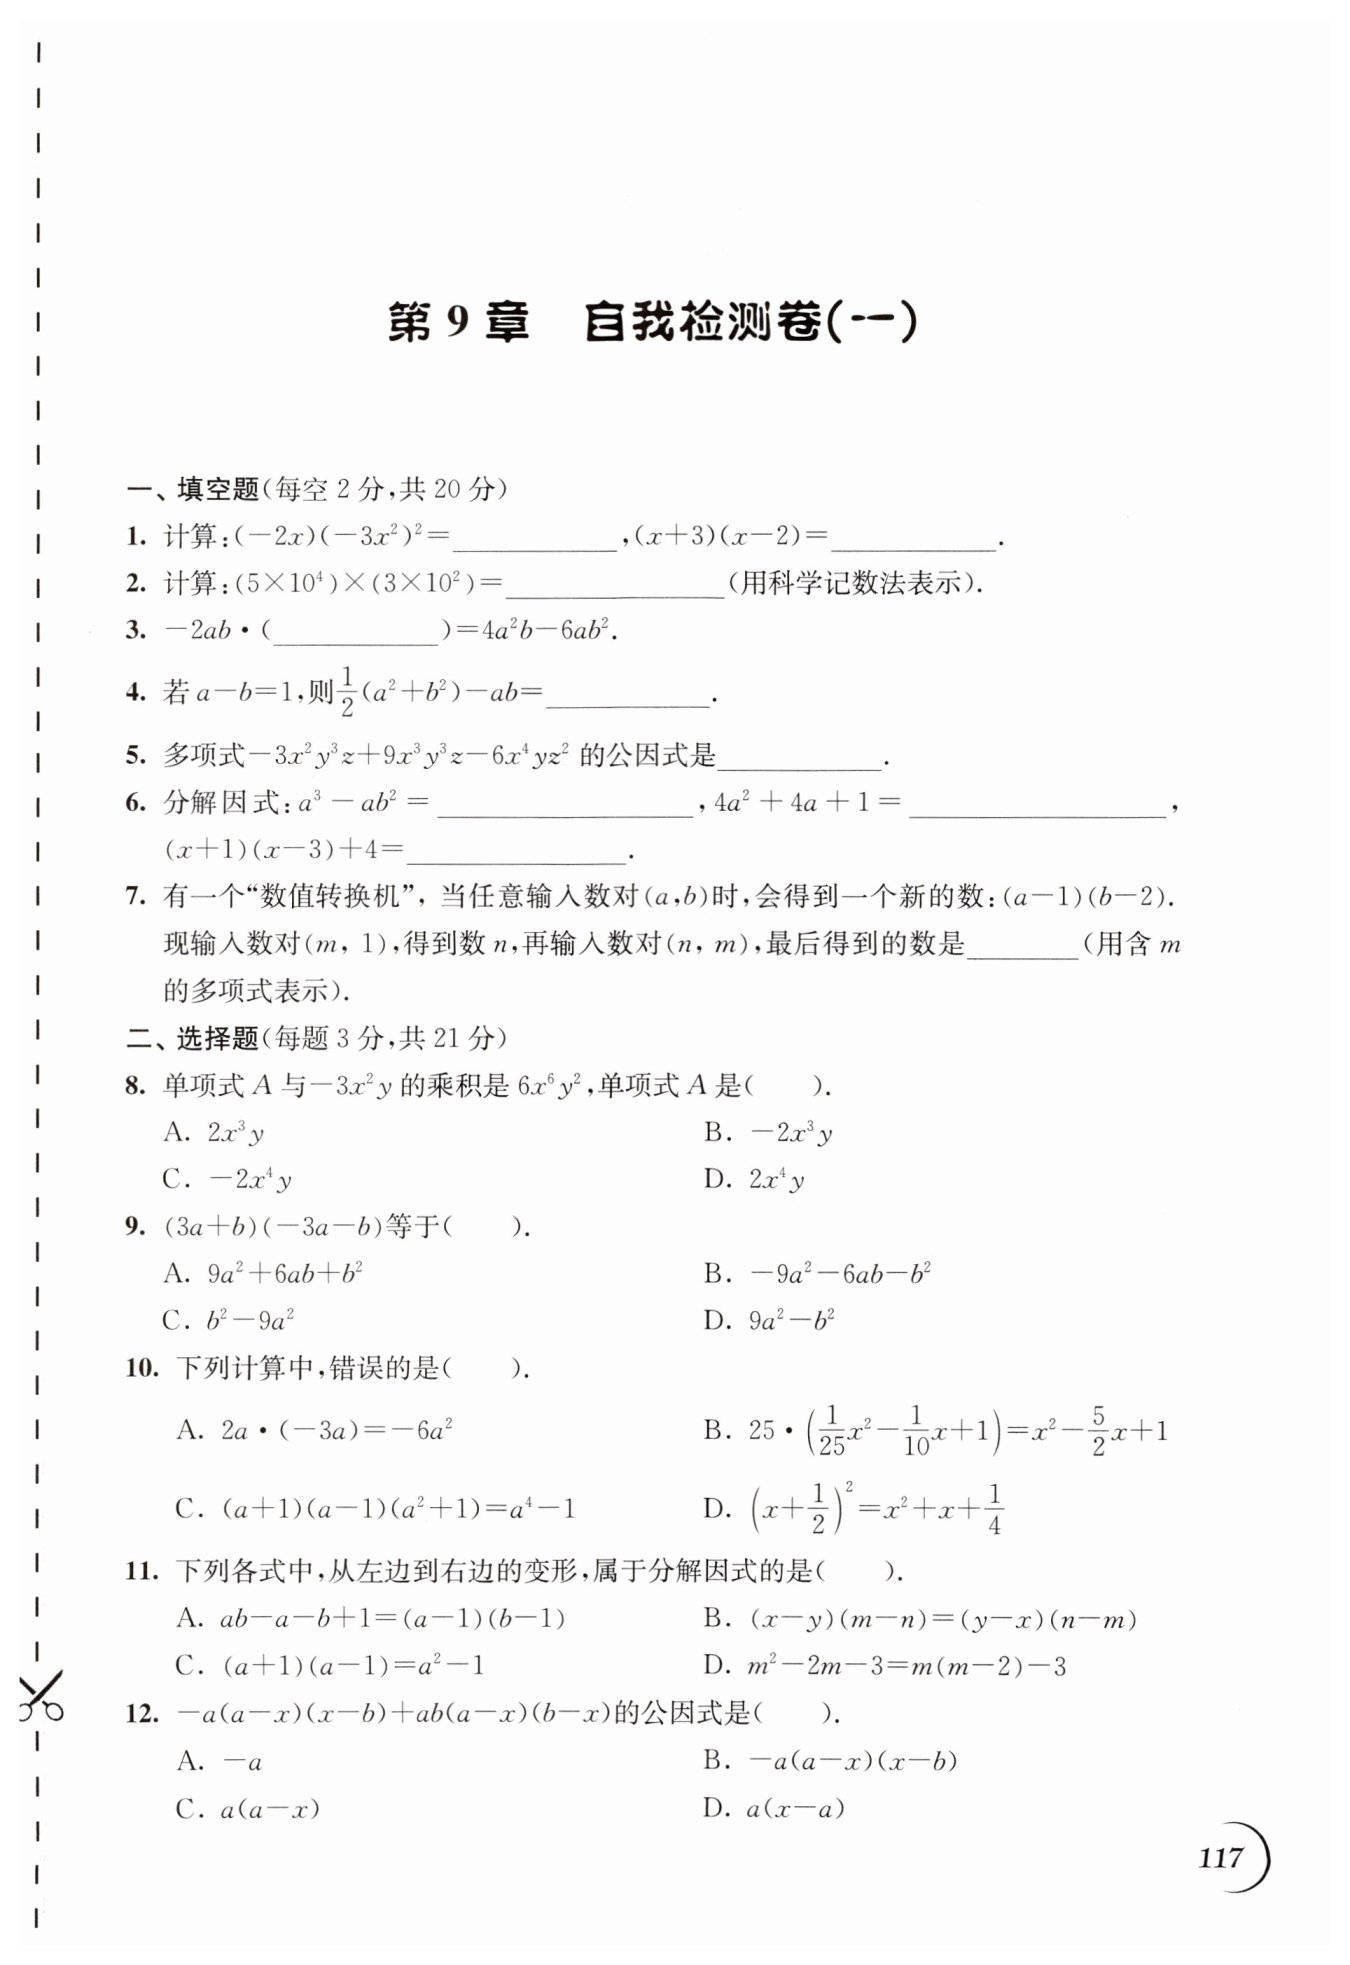 第 9 章 自我检测卷(一)
一、填空题(每空 2 分,共 20 分)
1. 计算:(-2x)(-3x²)²=__________,(x+3)(x-2)=__________.
2. 计算:(5×10⁴)×(3×10²)=__________(用科学记数法表示).
3. -2ab·(__________)=4a²b-6ab².
4. 若 a-b=1,则\frac{1}{2}(a²+b²)-ab=__________.
5. 多项式-3x²y³z+9x³y³z-6x⁴yz² 的公因式是__________.
6. 分解因式:a³-ab²=__________,4a²+4a+1=__________,
(x+1)(x-3)+4=__________.
7. 有一个“数值转换机”,当任意输入数对(a,b)时,会得到一个新的数:(a-1)(b-2).
现输入数对(m, 1),得到数 n,再输入数对(n, m),最后得到的数是________(用含 m
的多项式表示).
二、选择题(每题 3 分,共 21 分)
8. 单项式 A 与-3x²y 的乘积是 6x⁶y²,单项式 A 是(  ).
A. 2x³y B. -2x³y
C. -2x⁴y D. 2x⁴y
9. (3a+b)(-3a-b)等于(  ).
A. 9a²+6ab+b² B. -9a²-6ab-b²
C. b²-9a² D. 9a²-b²
10. 下列计算中,错误的是(  ).
A. 2a·(-3a)=-6a² B. 25·(\frac{1}{25}x²-\frac{1}{10}x+1)=x²-\frac{5}{2}x+1
C. (a+1)(a-1)(a²+1)=a⁴-1 D. (x+\frac{1}{2})²=x²+x+\frac{1}{4}
11. 下列各式中,从左边到右边的变形,属于分解因式的是(  ).
A. ab-a-b+1=(a-1)(b-1) B. (x-y)(m-n)=(y-x)(n-m)
C. (a+1)(a-1)=a²-1 D. m²-2m-3=m(m-2)-3
12. -a(a-x)(x-b)+ab(a-x)(b-x)的公因式是(  ).
A. -a B. -a(a-x)(x-b)
C. a(a-x) D. a(x-a)
117